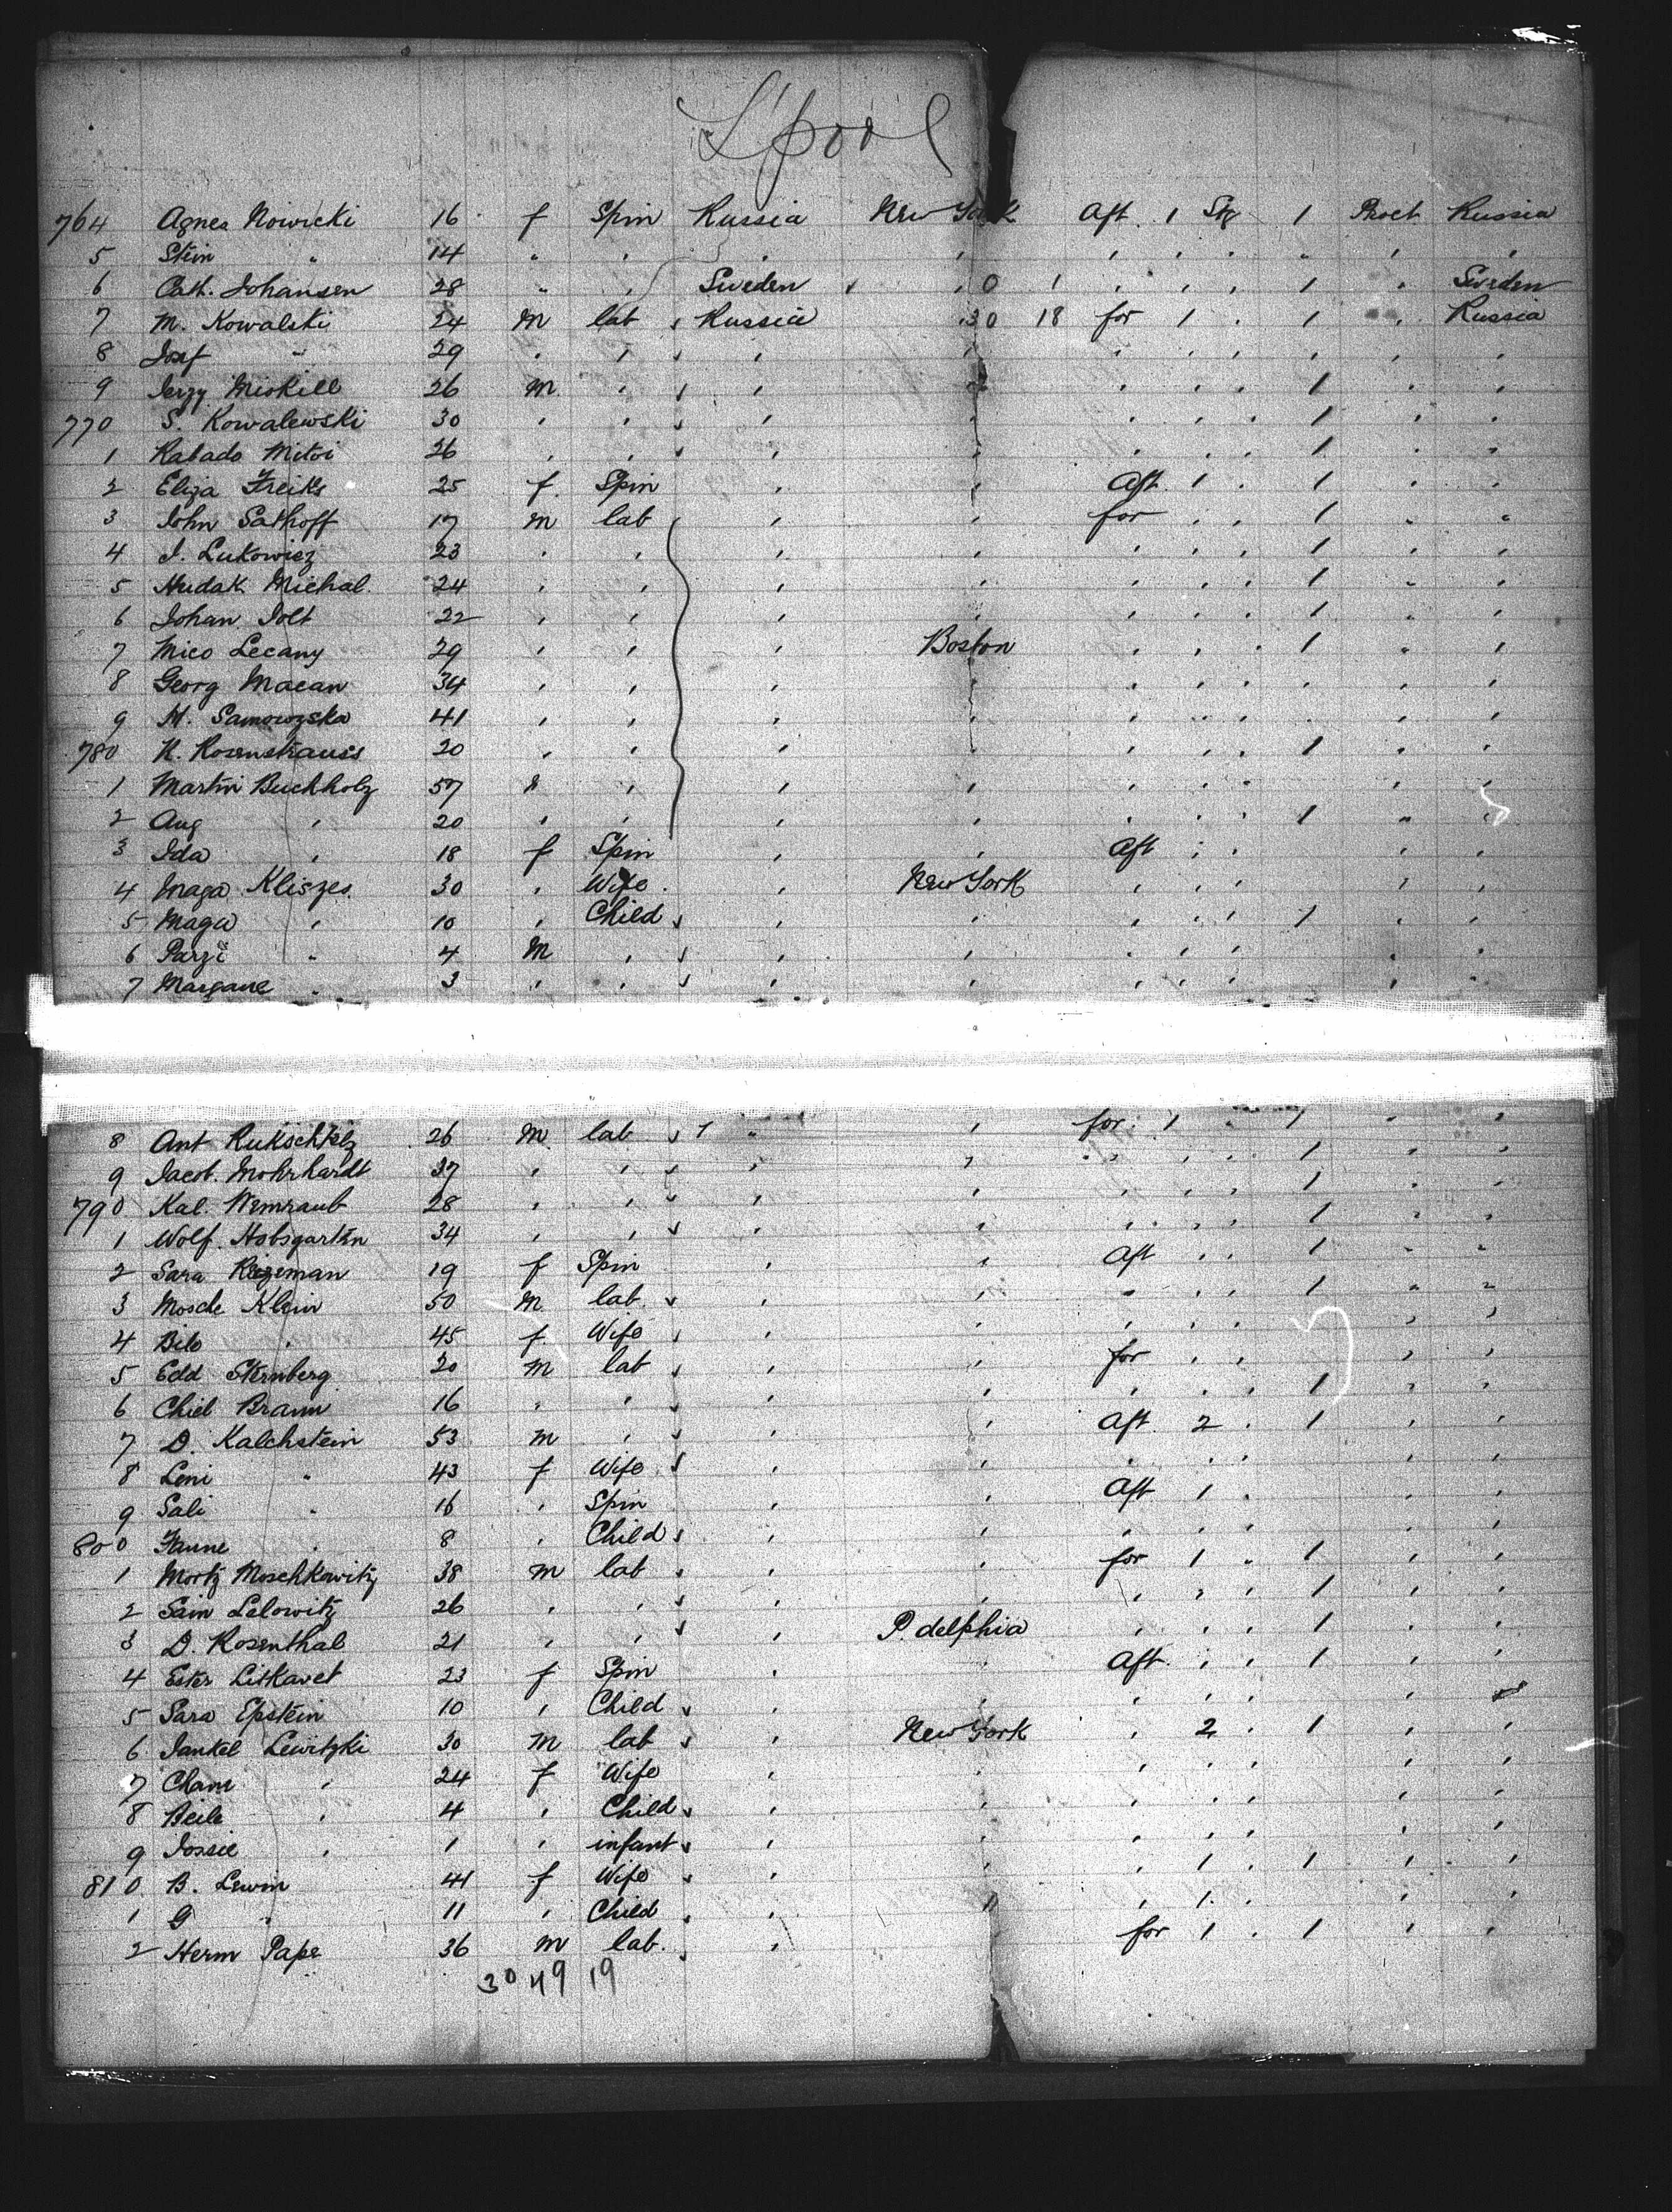 L'pool
764 Agnes Nowicki 16 f Spin Russia New York Aft 1 Stg 1 Proct Russia
5 Stein " 14 " " " " " " " " " "
6 Cath. Johansen 28 " " Sweden " 0 1 " " " 1 " Sweden
7 M. Kowalski 24 M lab Russia 30 18 for 1 " 1 " Russia
8 Josf " 29 " " " " " " " " " "
9 Jerzy Miskill 26 M " " " " " " 1 " "
770 S. Kowalewski 30 " " " " " " " 1 " "
1 Kabado Mitoi 26 " " " " " " " 1 " "
2 Eliza Freiks 25 f. Spin " " Aft. 1 " 1 " "
3 John Sathoff 17 m lab " " for " " 1 " "
4 J. Lukowicz 23 " " " " " " " 1 " "
5 Hudak Michal. 24 " " " " " " " 1 " "
6 Johan Jolt 22 " " " " " " " 1 " "
7 Mico Lecany 29 " " " Boston " " " 1 " "
8 Georg Macan 34 " " " " " " " " " "
9 M. Samowzska 41 " " " " " " " " " "
780 K. Rosenstrauss 20 " " " " " " " 1 " "
1 Martin Buchholz 57 " " " " " " " " "
2 Aug " 20 " " " " " " " 1 " "
3 Ida " 18 f Spin " " Aft " " " "
4 Maga Kliszes. 30 " Wife. " New York " " " " "
5 Maga " 10 " Child " " " " " 1 " "
6 Parzi " 4 M " " " " " " " "
7 Margane " 3 " " " " " " " " "
8 Ant Rukschtelz 26 M lab " " for. 1 " 1 " "
9 Jacob. Mohrhardt 37 " " " " " " " 1 " "
790 Kal. Wemraub 28 " " " " " " " 1 " "
1 Wolf. Habsgarten 34 " " " " " " " 1 " "
2 Sara 19 f Spin " " Aft " " 1 " "
3 Mosche Klein 50 M lab. " " " " " 1 " "
4 Bilo " 45 f Wife " " " " " " "
5 Edd Sternberg 20 m lab " " for " " " "
6 Chiel Braun 16 " " " " " " " 1 " "
7 D. Kalchstein 53 m " " " Aft 2 " 1 " "
8 Leni " 43 f Wife " " " " " " "
9 Sali " 16 " Spin " " Aft 1 " " "
800 " 8 " Child " " " " " " "
1 Mortz Moschkowitz 38 m lab " " for 1 " 1 " "
2 Sain Lelowitz 26 " " " " " " " 1 " "
3 D. Rosenthal 21 " " " P. delphia " " " 1 " "
4 Ester Litkavet 23 f Spin " " Aft. " " 1 " "
5 Sara Epstein 10 " Child " " " " " " "
6 Jankel Lewitzki 30 m lab " New York " 2 " 1 " "
7 Cham " 24 f Wife " " " " " " "
8 Beile " 4 " Child " " " " " " "
9 Jossie " 1 " infant " " " " " " "
810 B. Lewin 44 f Wife " " " 1 " 1 " "
1 G " 11 " Child " " " 1 " " "
2 Herm Pape 36 m lab. " " for 1 " 1 " "
30 49 19